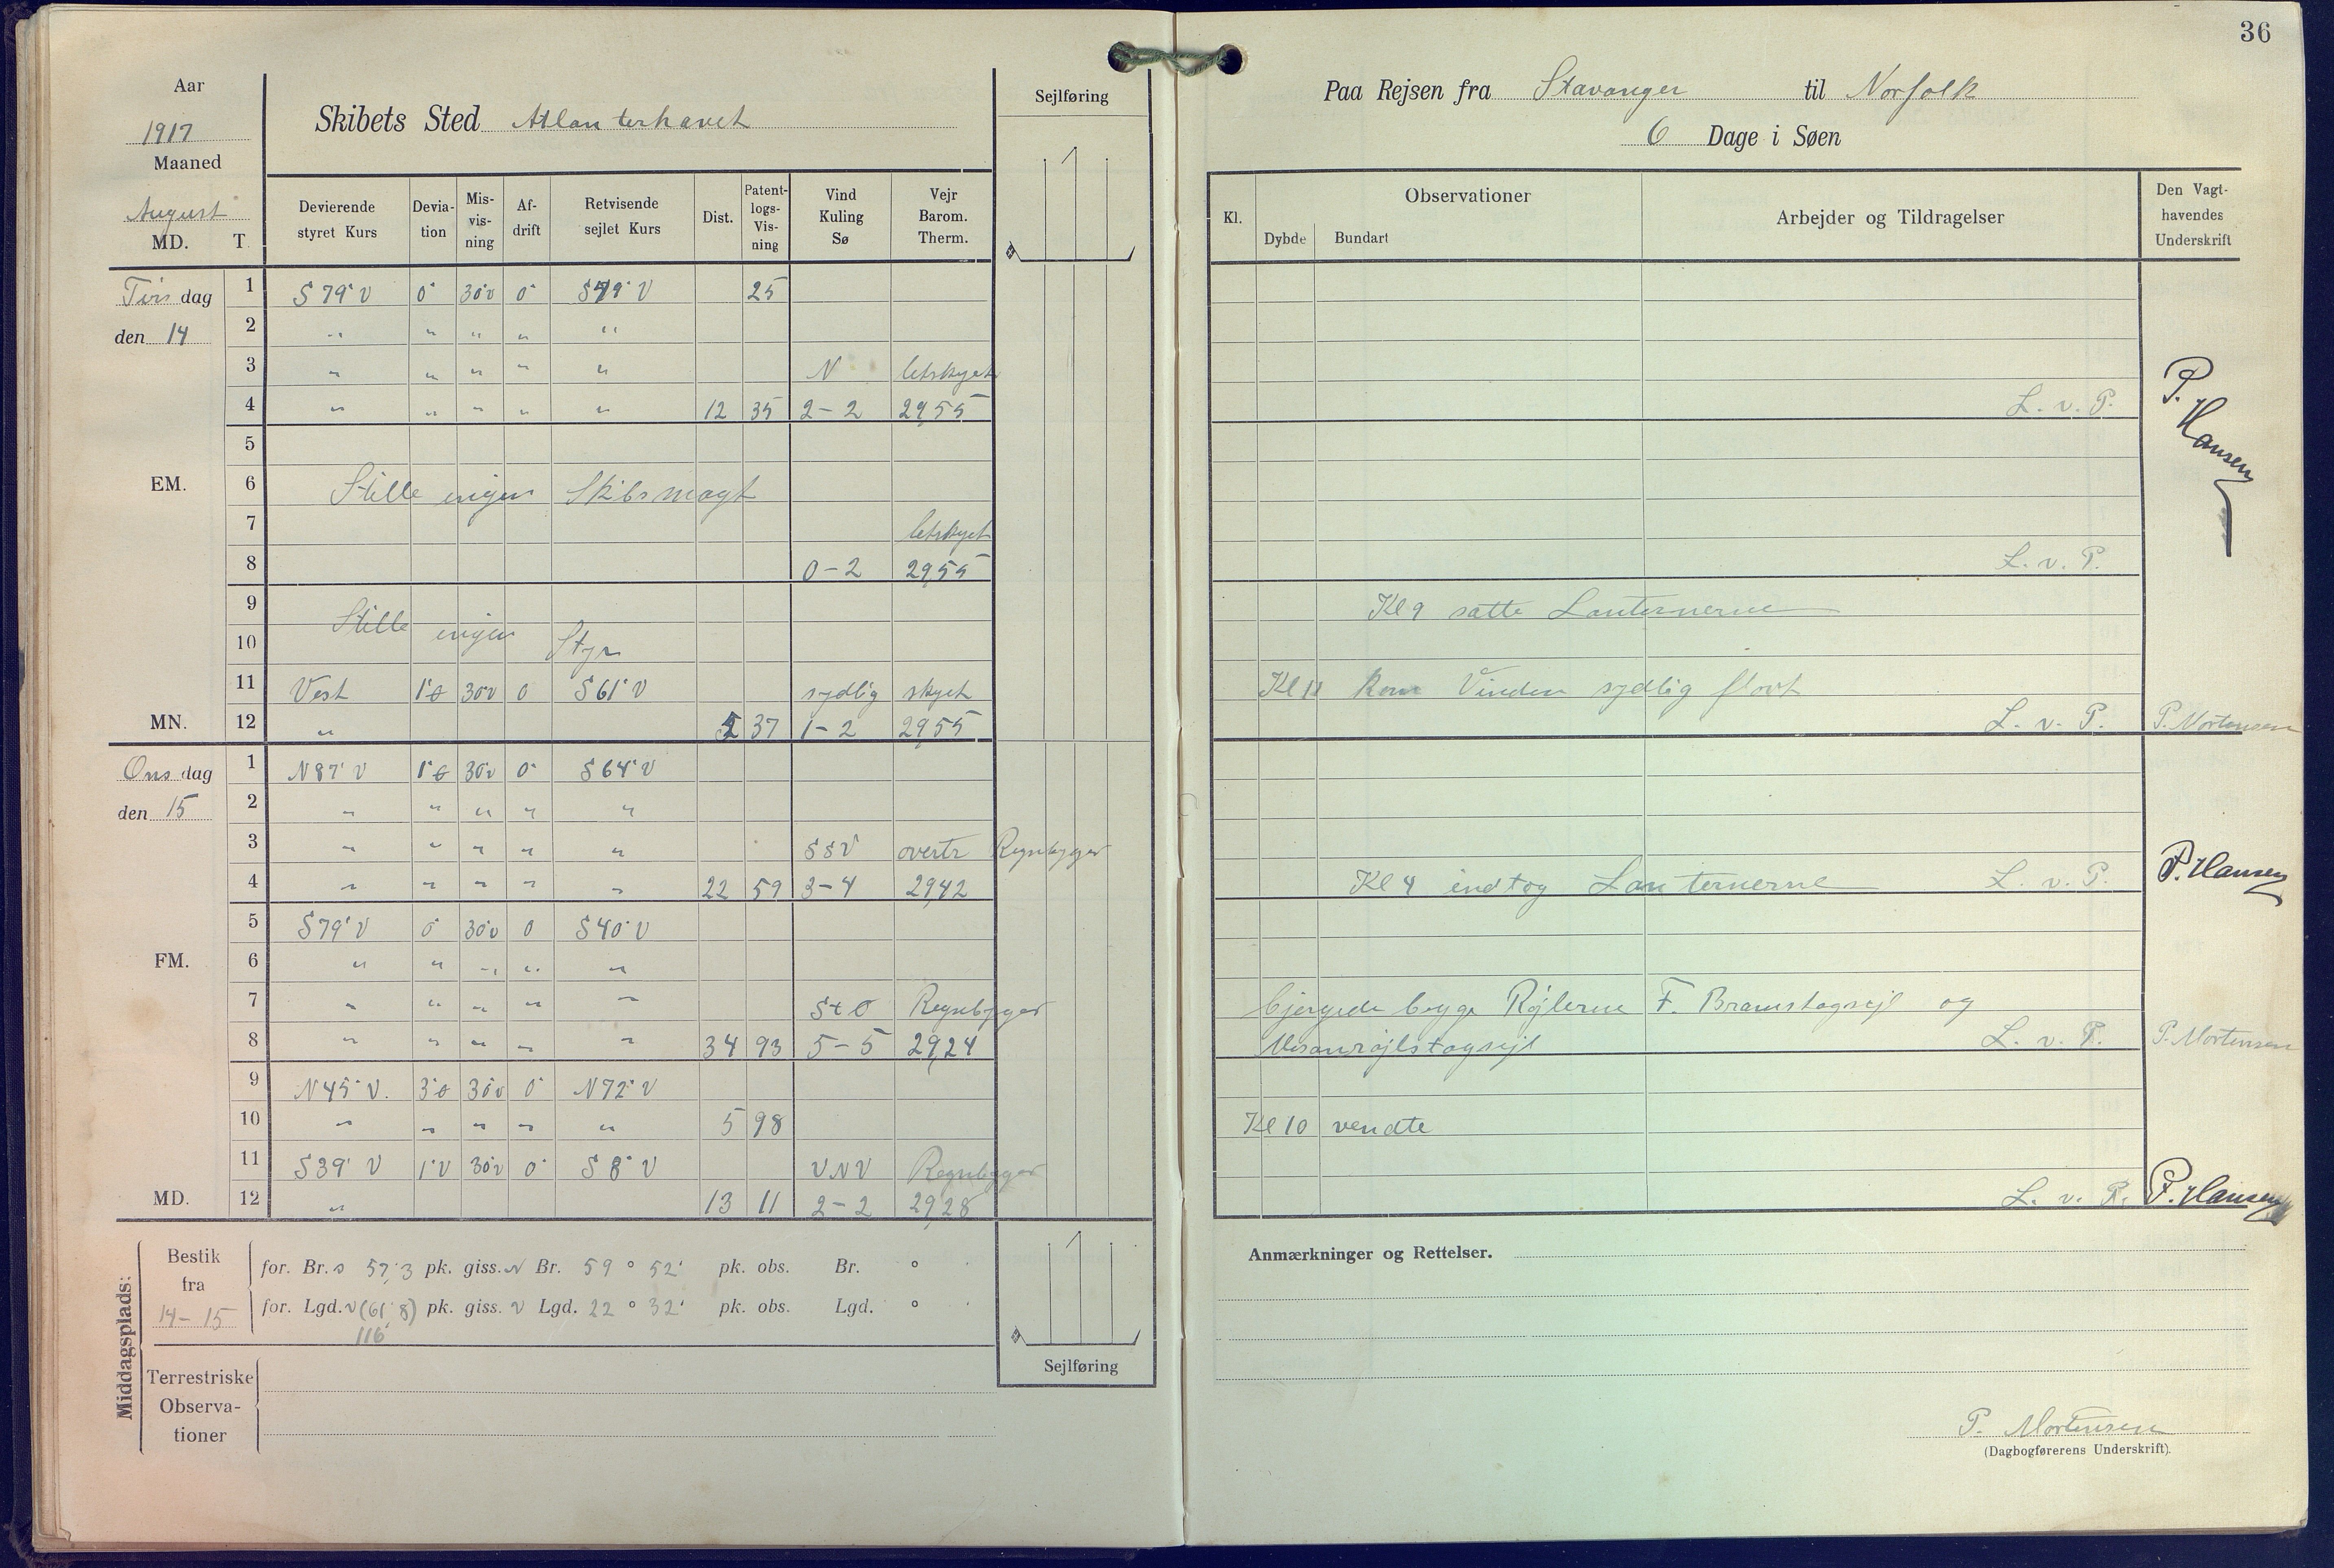 36
Aar
1917
Maaned
August
MD. T.
Skibets Sted Atlanterhavet
Sejlføring
Paa Rejsen fra Stavanger til Norfolk
6 Dage i Søen
Devierende styret Kurs
Devia-tion
Mis-vis-ning
Af-drift
Retvisende sejlet Kurs
Dist.
Patent-logs-Vis-ning
Vind Kuling Sø
Vejr Barom. Therm.
Kl.
Observationer
Dybde Bundart
Arbejder og Tildragelser
Den Vagt-havendes Underskrift
Tirsdag 1 S 79° V 0° 30°v 0° S 49° V 25
den 14 2 " " " " "
3 " " " " " N letskyet
4 " " " " " 12 35 2-2 29,55 L. v. P. P. Hansen
5
EM. 6 Stille ingen Skibsmagt
7 letskyet
8 0-2 29,55 L. v. P.
9 Stille ingen Styr Kl 9 satte Lanternerne
10
11 Vest 1°ø 30°v 0 S 61° V sydlig skyet Kl 11 kom Vinden sydlig flovt
MN. 12 " 2 37 1-2 29,55 L. v. P. P. Mortensen
Onsdag 1 N 87° V 1°ø 30°v 0° S 64° V
den 15 2 " " " " "
3 " " " " " SSV overtr Regnbyger
4 " " " " " 22 59 3-4 29,42 Kl 4 indtog Lanternerne L. v. P. P. Hansen
5 S 79° V 0° 30°v 0 S 40° V
FM. 6 " " " " "
7 " " " " " StO Regnbyger bjergede begge Røjlerne F. Bramstagsejl og
8 " " " " " 34 93 5-5 29,24 Mesanrøjlstagsejl L. v. P. P. Mortensen
9 N 45° V. 3°ø 30°v 0° N 72° V
10 " " " " " 5 98 Kl 10 vendte
11 S 39° V 1°V 30°v 0° S 8° V VNV Regnbyger
MD. 12 " 13 11 2-2 29,28 L. v. P. P. Hansen
Middagsplads:
Bestik fra 14-15
for. Br. s 57,3 pk. giss. N Br. 59 ° 52' pk. obs. Br. °
for. Lgd. v (61,8) pk. giss. V Lgd. 22 ° 32' pk. obs. Lgd. °
116'
Sejlføring
Terrestriske
Observa-
tioner
Anmærkninger og Rettelser.
P. Mortensen
(Dagbogførerens Underskrift).